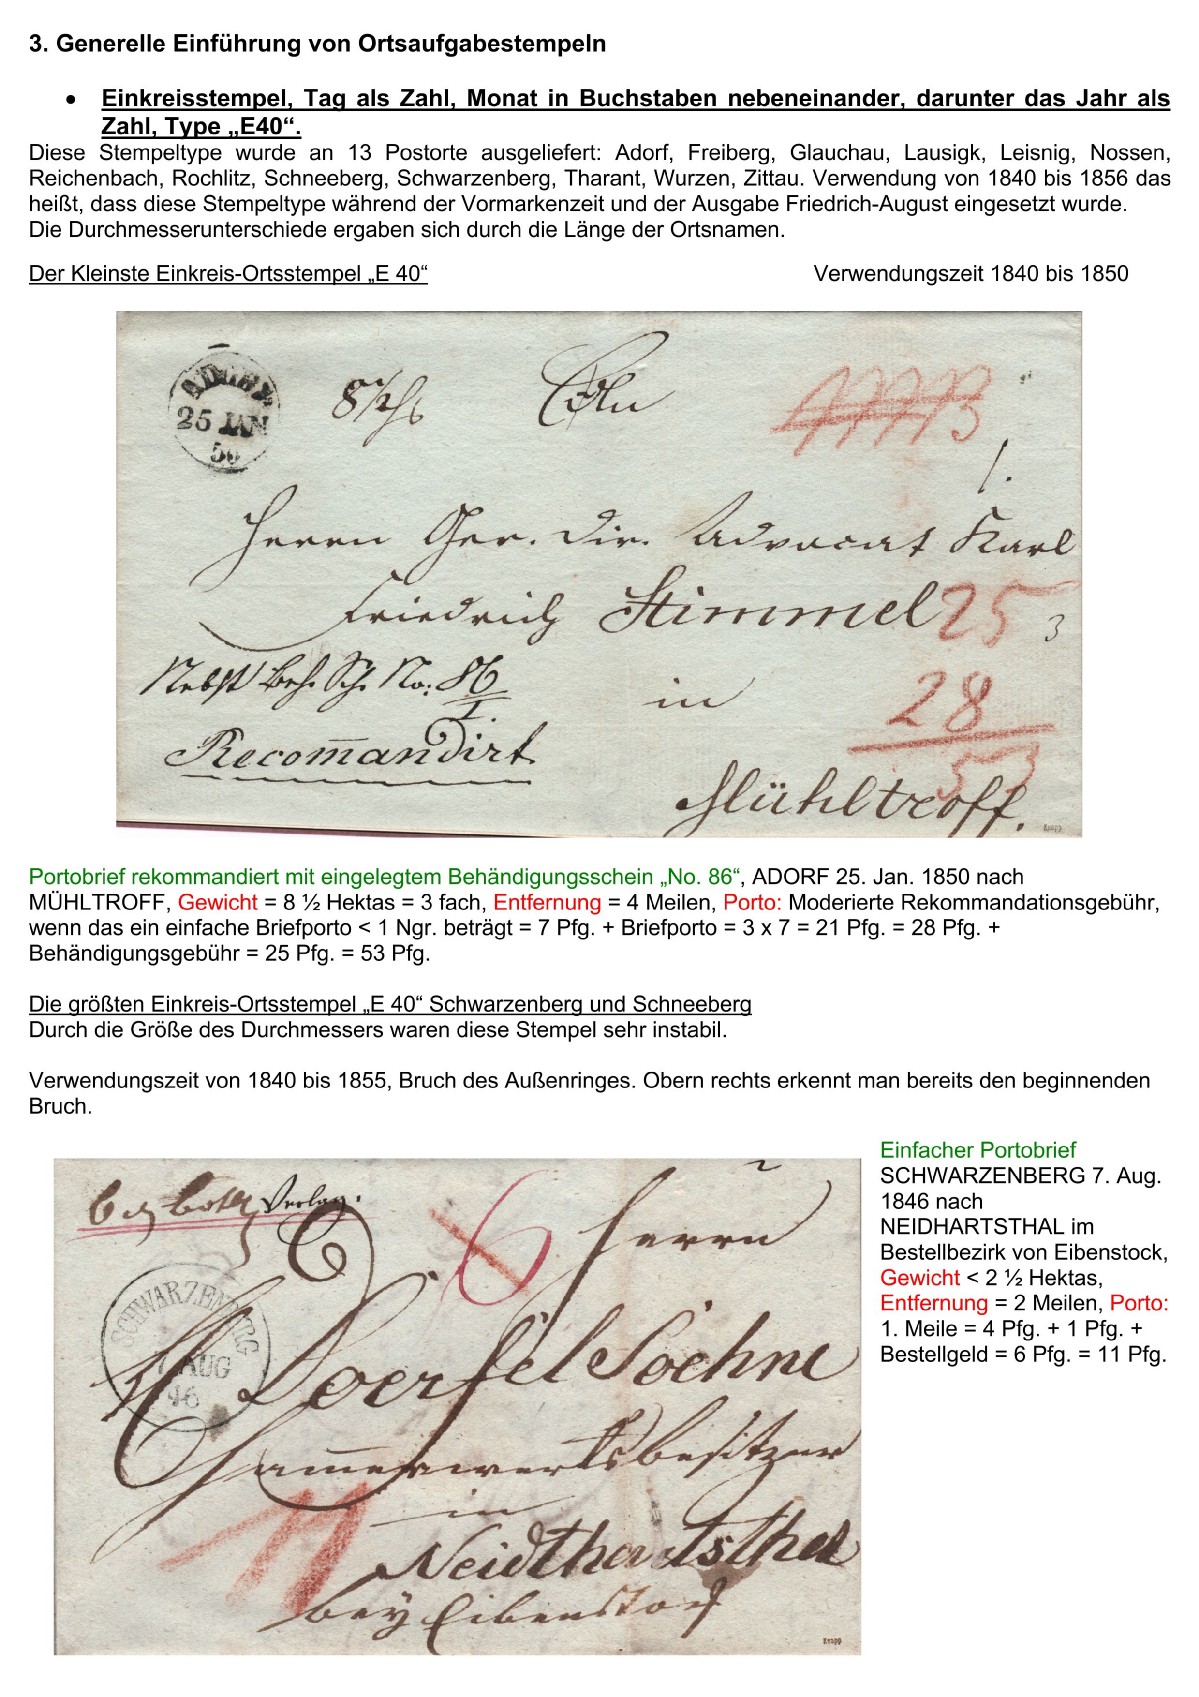 3. Generelle Einführung von Ortsaufgabestempeln
• Einkreisstempel, Tag als Zahl, Monat in Buchstaben nebeneinander, darunter das Jahr als
Zahl, Type „E40“.
Diese Stempeltype wurde an 13 Postorte ausgeliefert: Adorf, Freiberg, Glauchau, Lausigk, Leisnig, Nossen,
Reichenbach, Rochlitz, Schneeberg, Schwarzenberg, Tharant, Wurzen, Zittau. Verwendung von 1840 bis 1856 das
heißt, dass diese Stempeltype während der Vormarkenzeit und der Ausgabe Friedrich-August eingesetzt wurde.
Die Durchmesserunterschiede ergaben sich durch die Länge der Ortsnamen.
Der Kleinste Einkreis-Ortsstempel „E 40“ Verwendungszeit 1840 bis 1850
ADORF
25 JAN
50
Herrn Ger. Dir. Advocat Karl
Friedrich Stimmel 25
3
Nebst Beh. Sch. No: 86
I.
in 28
Recom̅andirt 53
Mühltroff.
Knapp
Portobrief rekommandiert mit eingelegtem Behändigungsschein „No. 86“, ADORF 25. Jan. 1850 nach
MÜHLTROFF, Gewicht = 8 ½ Hektas = 3 fach, Entfernung = 4 Meilen, Porto: Moderierte Rekommandationsgebühr,
wenn das ein einfache Briefporto < 1 Ngr. beträgt = 7 Pfg. + Briefporto = 3 x 7 = 21 Pfg. = 28 Pfg. +
Behändigungsgebühr = 25 Pfg. = 53 Pfg.
Die größten Einkreis-Ortsstempel „E 40“ Schwarzenberg und Schneeberg
Durch die Größe des Durchmessers waren diese Stempel sehr instabil.
Verwendungszeit von 1840 bis 1855, Bruch des Außenringes. Obern rechts erkennt man bereits den beginnenden
Bruch.
Verlag.
6
Herrn
SCHWARZENBERG
7 AUG
46
Doerfel Soehne
Hammerwerksbesitzer
in
11
Neidthardtsthal
bey Eibenstock
Knapp
Einfacher Portobrief
SCHWARZENBERG 7. Aug.
1846 nach
NEIDHARTSTHAL im
Bestellbezirk von Eibenstock,
Gewicht < 2 ½ Hektas,
Entfernung = 2 Meilen, Porto:
1. Meile = 4 Pfg. + 1 Pfg. +
Bestellgeld = 6 Pfg. = 11 Pfg.